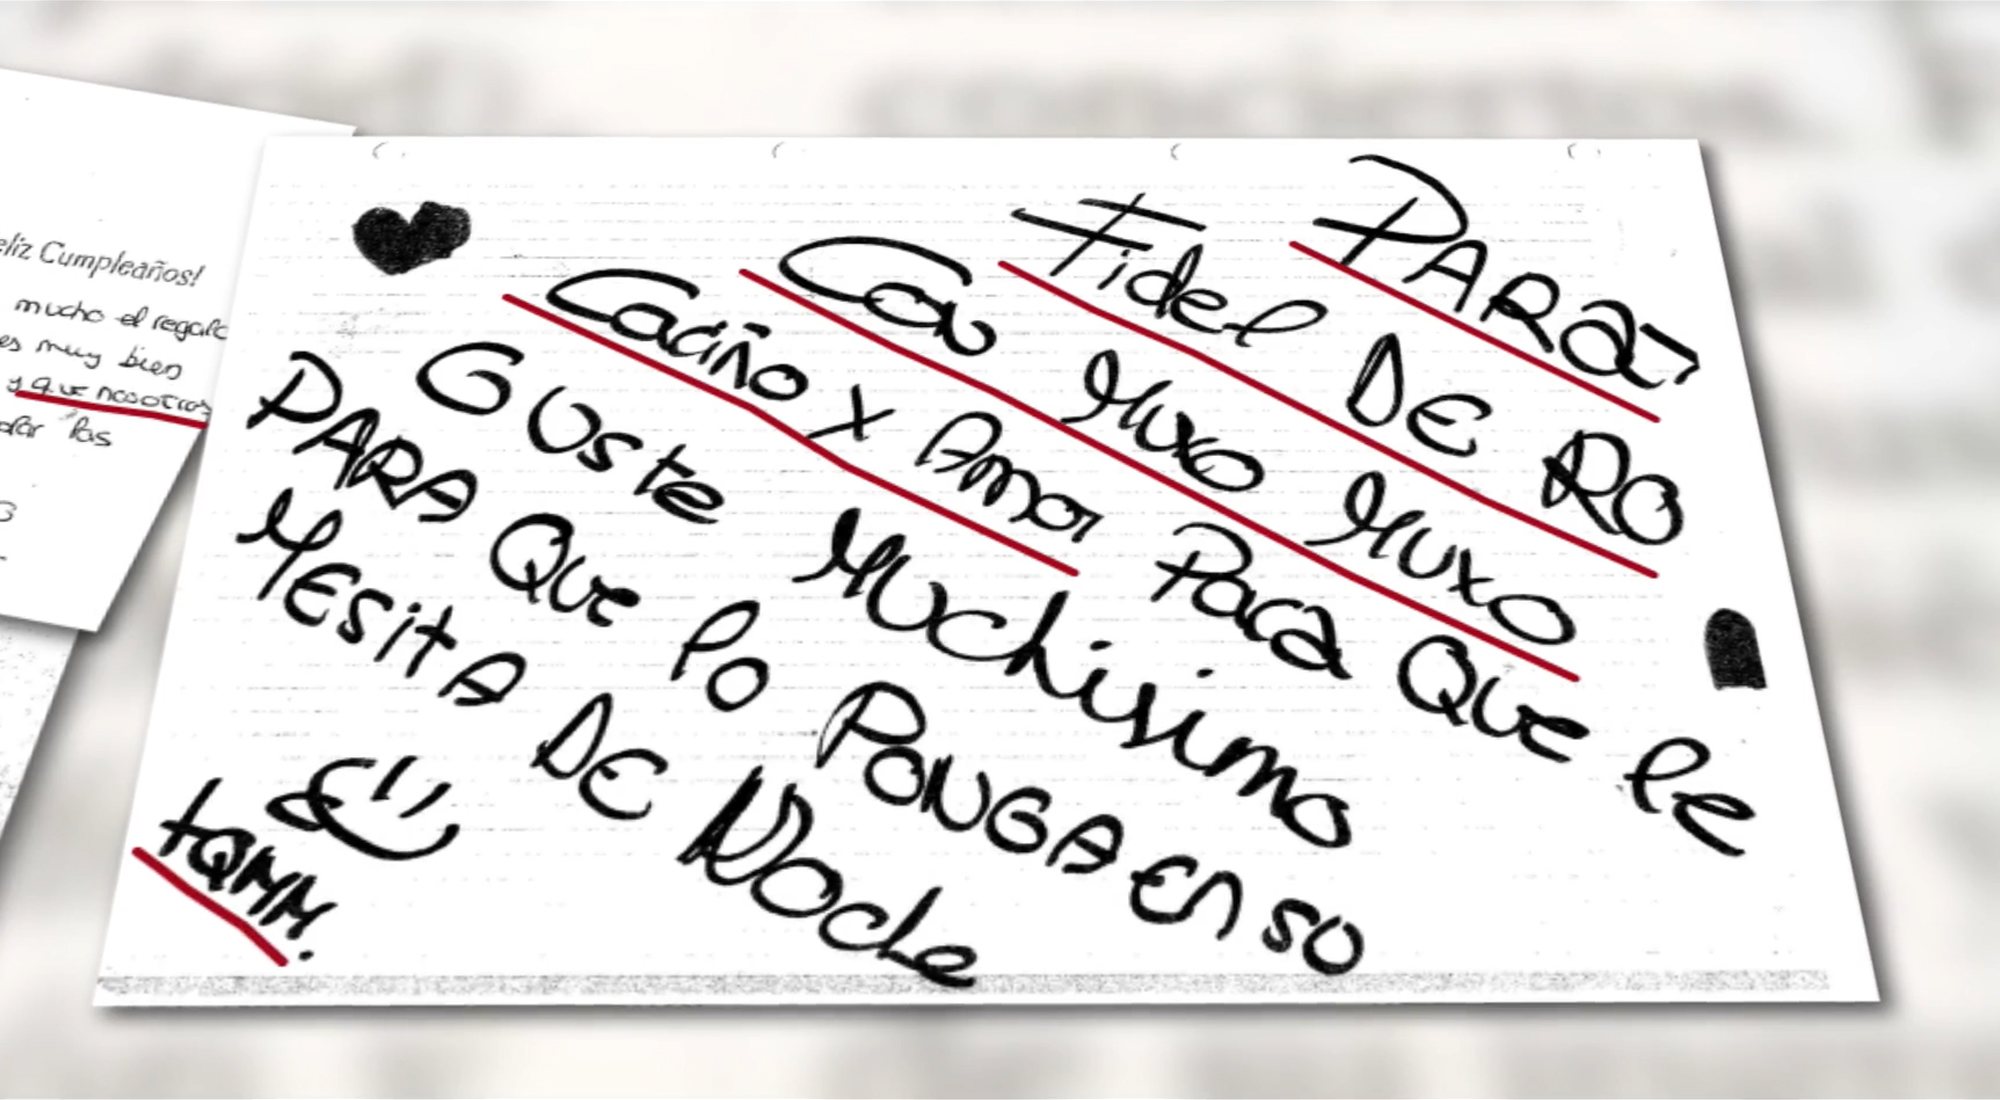 eliz Cumpleaños!
mucho el regalo
es muy bien
y que nosotros
las
PARA
Fidel DE RO
Con Muxo Muxo
Cariño x Amor Para Que le
Guste Muchisimo
PARA Que lo PONGA en su
MESitA DE Noche
tQMM.